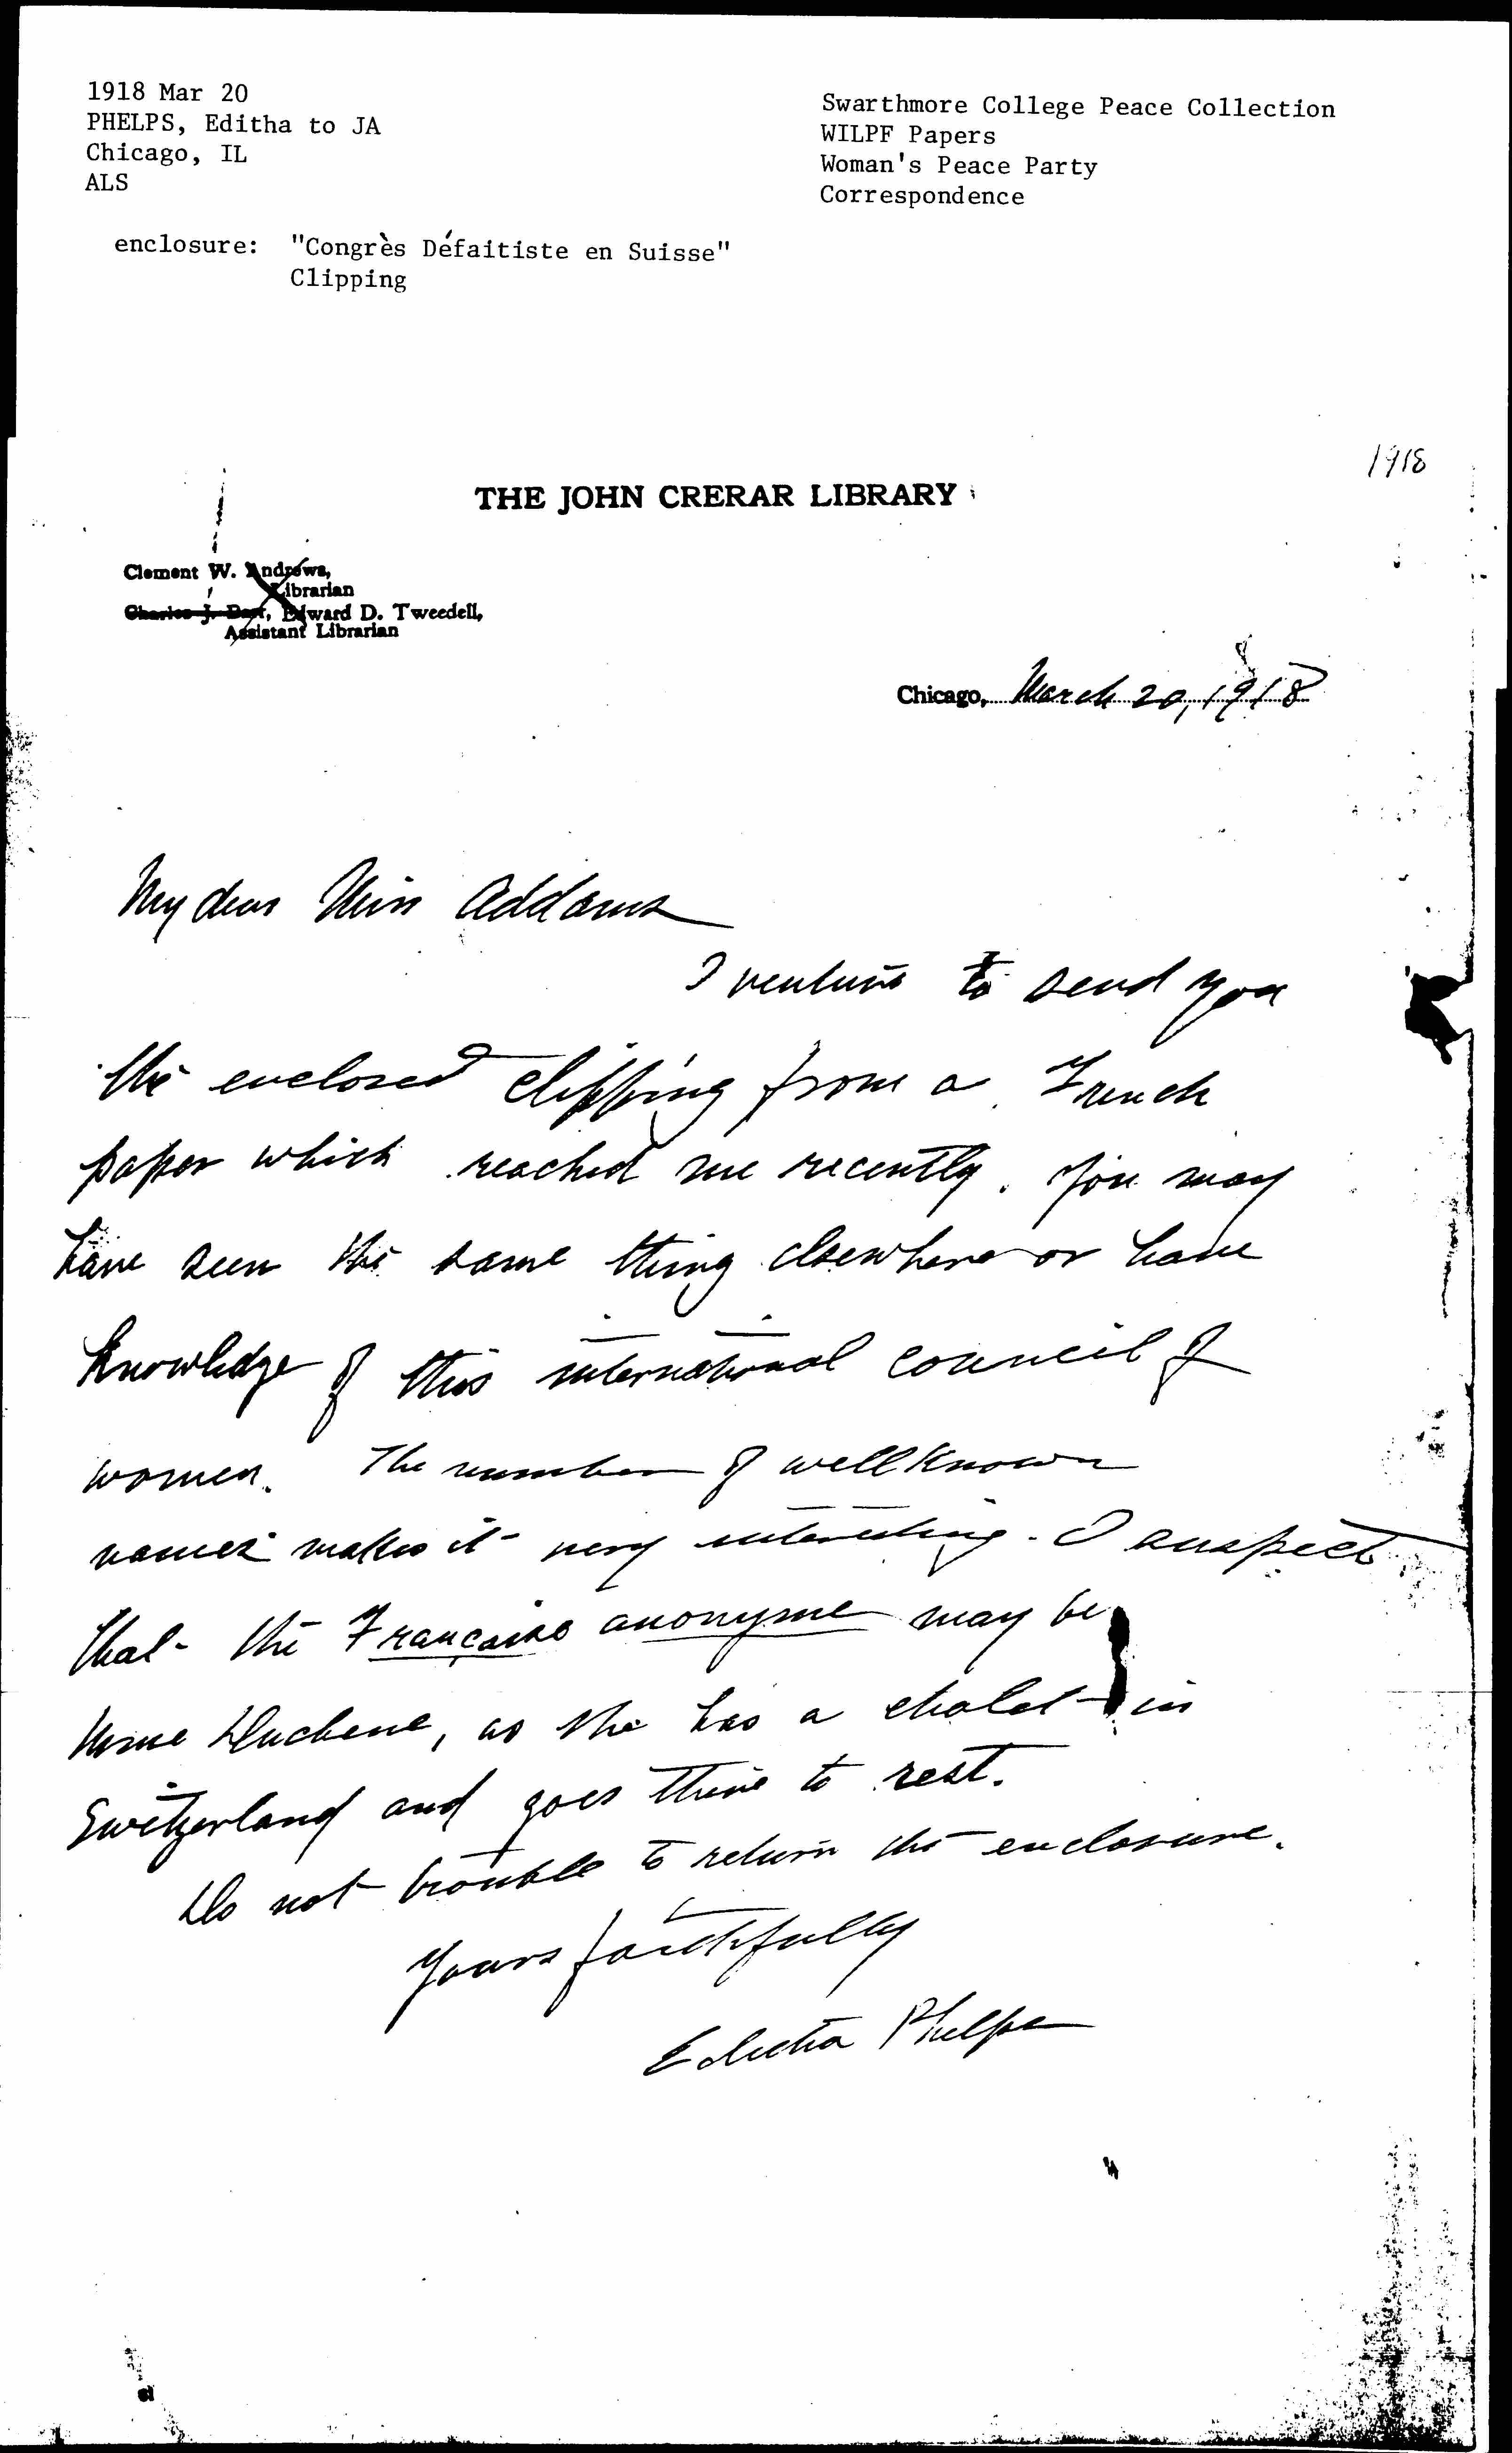 1918 Mar 20
PHELPS, Editha to JA
Chicago, IL
ALS
Swarthmore College Peace Collection
WILPF Papers
Woman's Peace Party
Correspondence
enclosure: "Congrès Défaitiste en Suisse"
Clipping
1918
THE JOHN CRERAR LIBRARY
Clement W. Andrews,
Librarian
Charles J. Barr, Edward D. Tweedell,
Assistant Librarian
Chicago, March 20, 1918
My dear Miss Addams
I venture to send you
the enclosed clipping from a French
paper which reached me recently. You may
have seen the same thing elsewhere or have
knowledge of this international council of
women. The number of well known
names makes it very interesting. I suspect
that the Française anonyme may be
Mme Duchene, as she has a chalet in
Switzerland and goes there to rest.
Do not trouble to return the enclosure.
Yours faithfully
Editha Phelps